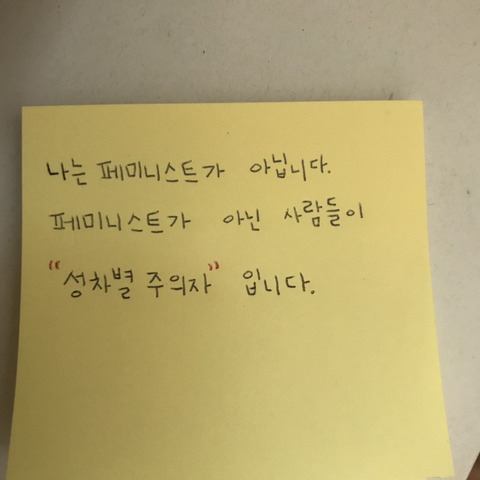 나는 페미니스트가 아닙니다.
페미니스트가 아닌 사람들이
"성차별 주의자" 입니다.